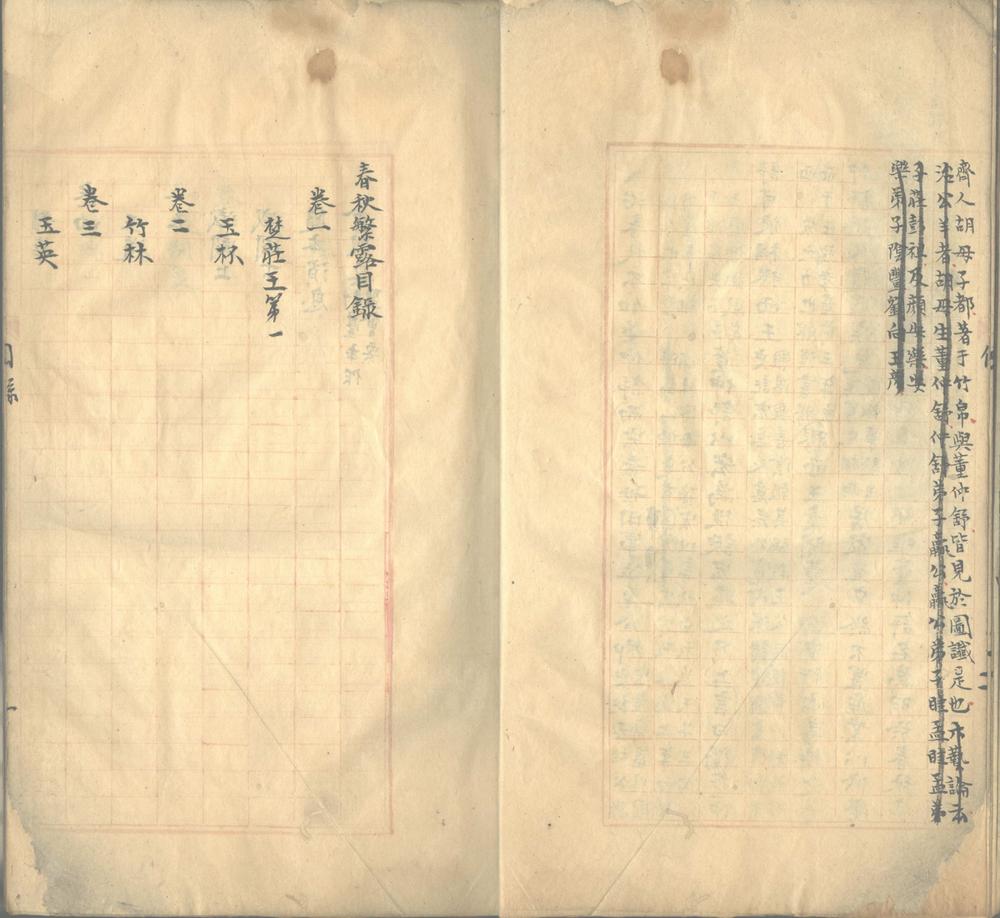 齊人胡母子都著于竹帛與董仲舒皆見於圖讖是也六藝論云
治公羊者胡母生董仲舒仲舒弟子嬴公嬴公弟子眭孟眭孟弟
子莊彭祖及顏安樂安
樂弟子陰豐劉向王彥
春秋繁露目錄
卷一
楚莊王第一
玉杯
卷二
竹林
卷三
玉英
目錄
一